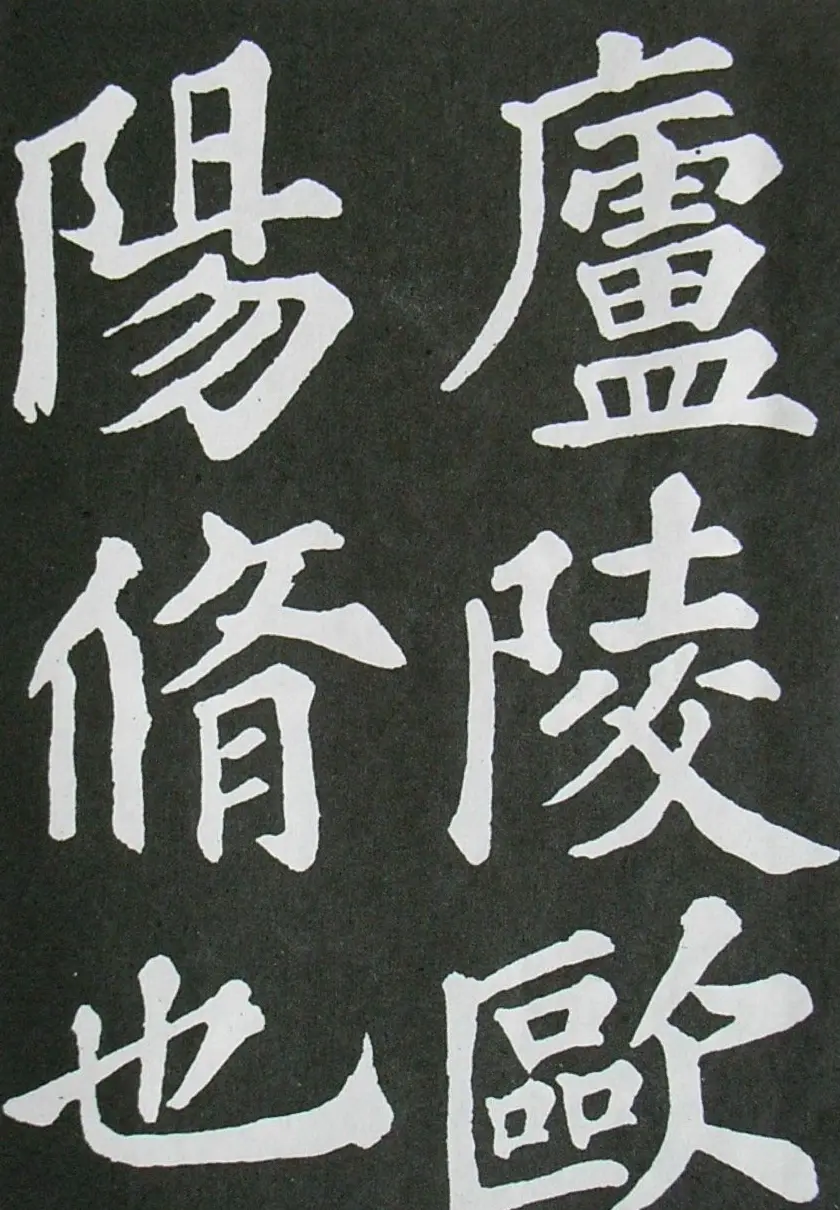 廬陵歐
陽脩也